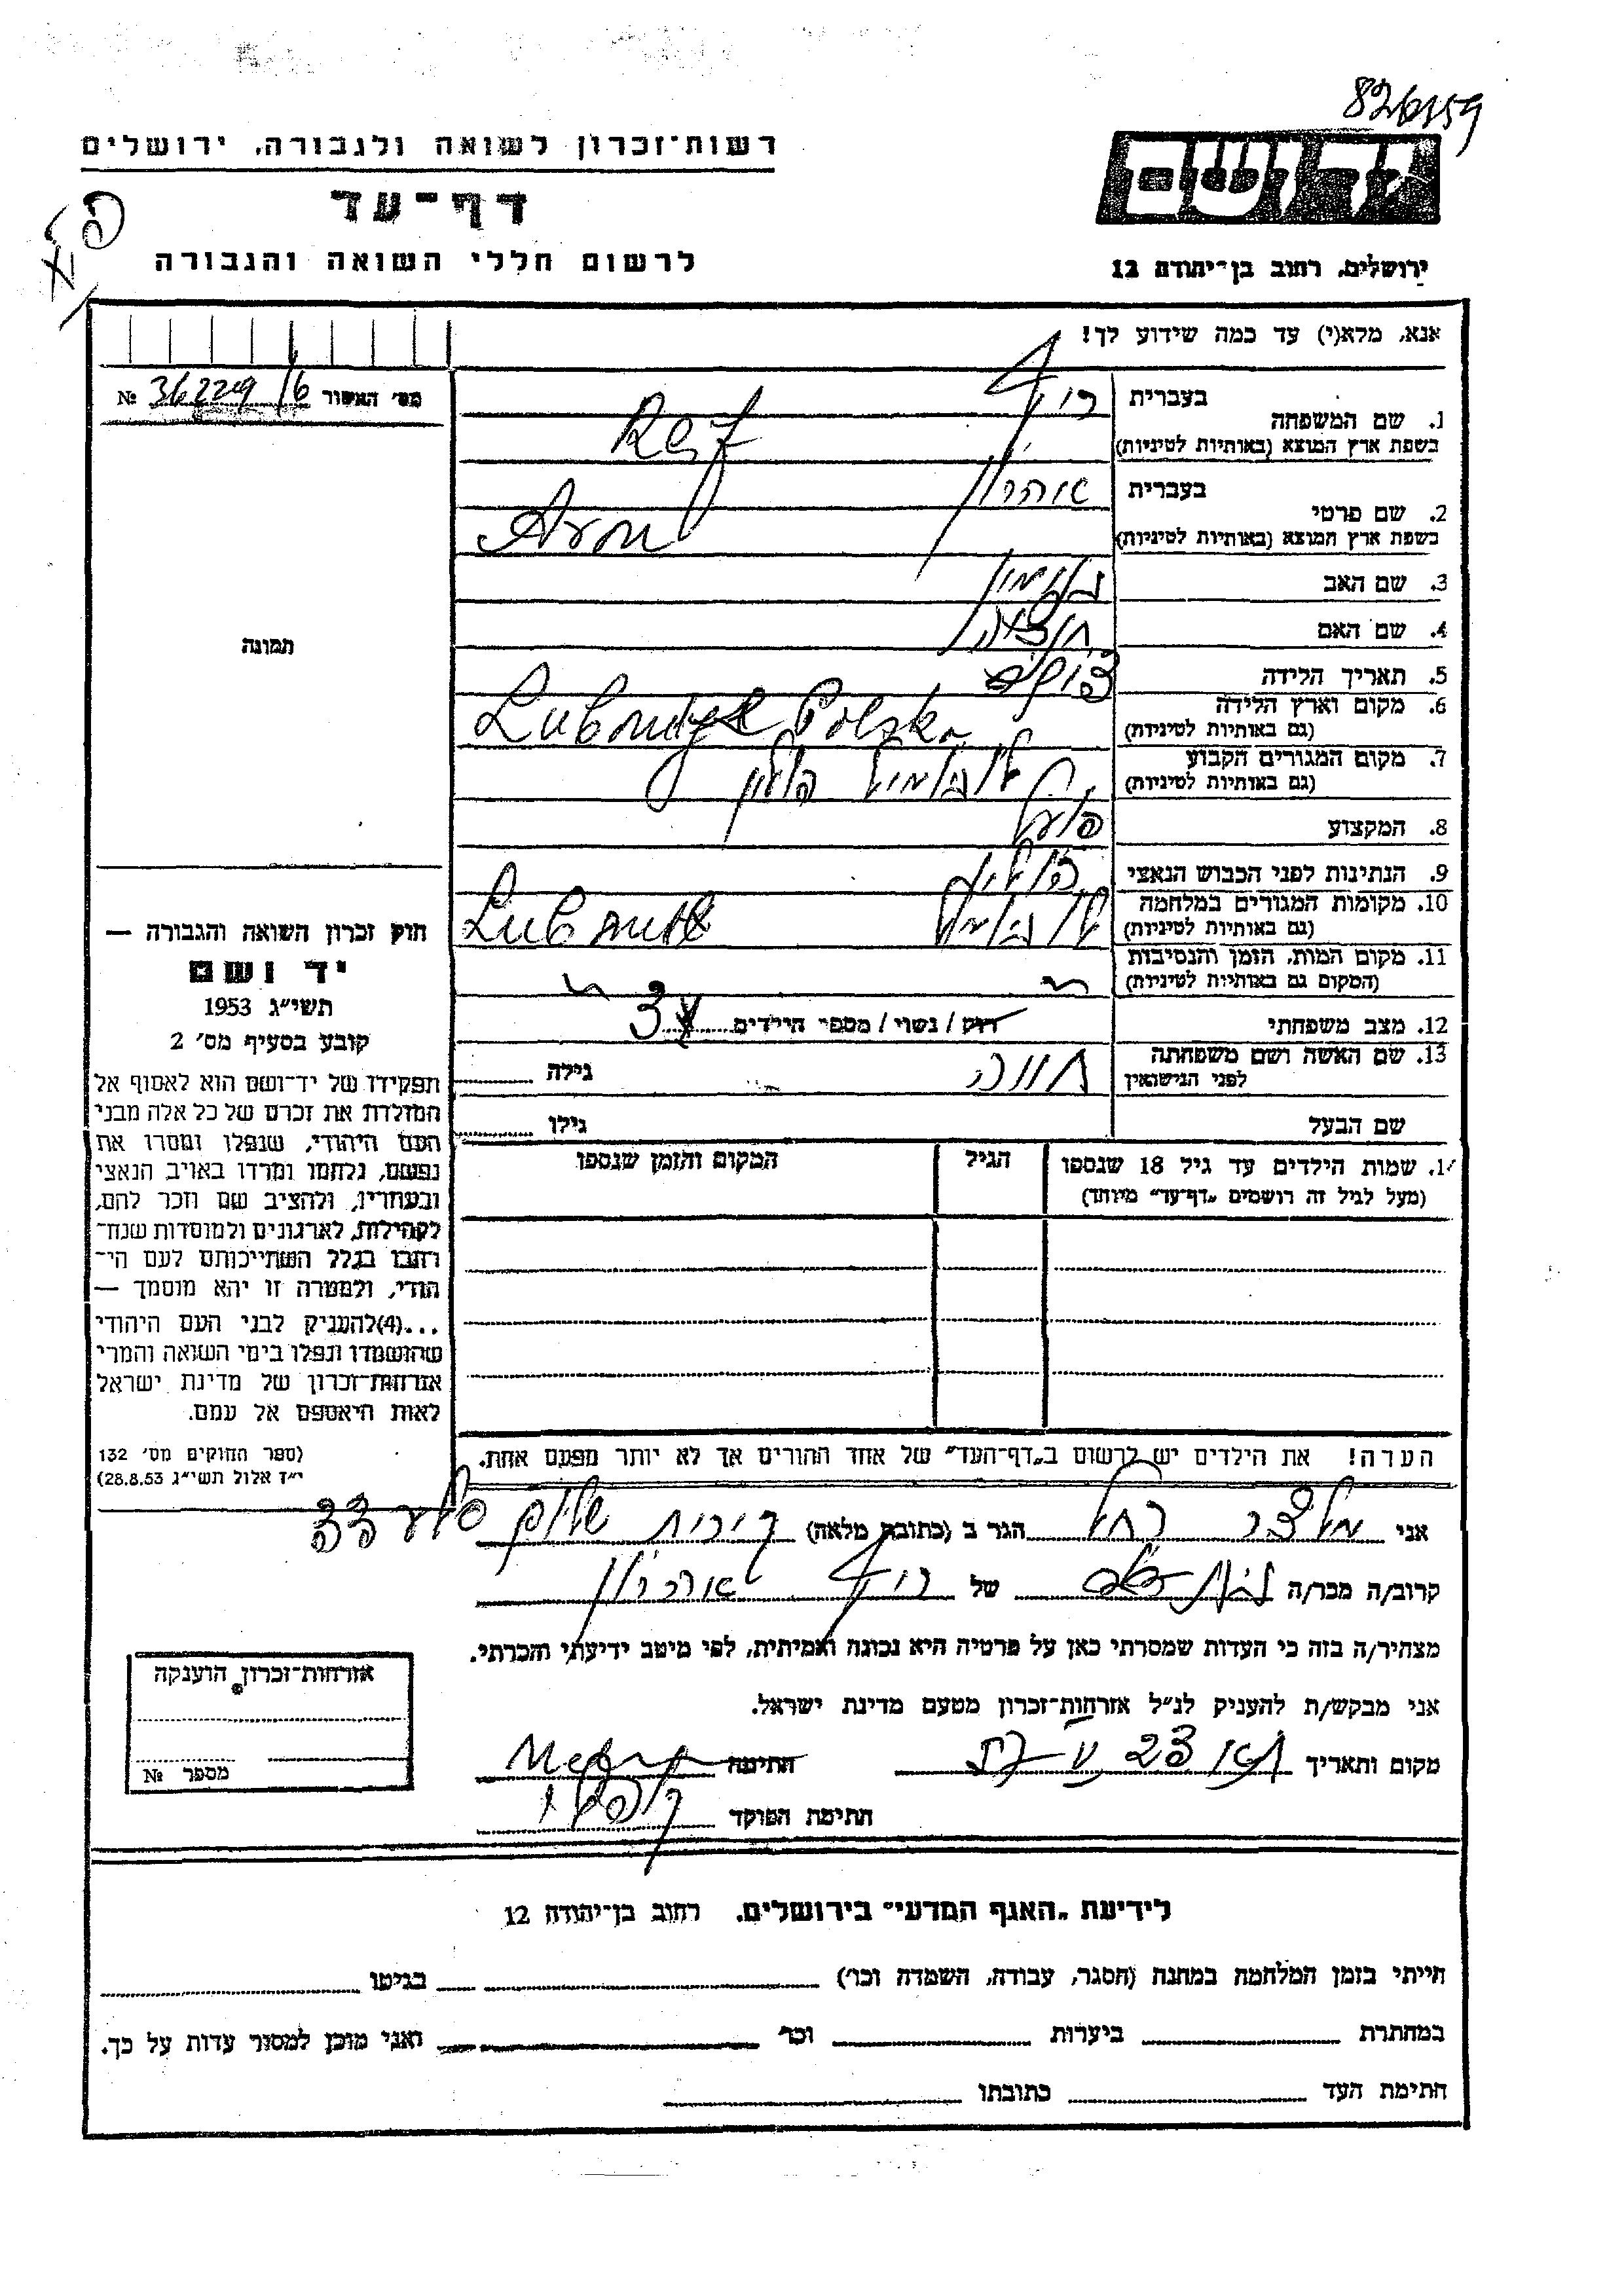 826/159
רשות-זכרון לשואה ולגבורה, ירושלים
דף-עד
לרשום חללי השואה והגבורה
ידושם
ירושלים, רחוב בן-יהודה 12
אנא, מלא(י) עד כמה שידוע לך!
מס' האשור 36229/6 №
1. שם המשפחה
בעברית
בשפת ארץ המוצא (באותיות לטיניות)
2. שם פרטי
בעברית אהרון
בשפת ארץ המוצא (באותיות לטיניות) Aron
3. שם האב בנימין
4. שם האם
5. תאריך הלידה
6. מקום וארץ הלידה
(גם באותיות לטיניות) Polska
7. מקום המגורים הקבוע
(גם באותיות לטיניות) פולין
8. המקצוע פועל
9. הנתינות לפני הכבוש הנאצי
10. מקומות המגורים במלחמה
(גם באותיות לטיניות)
11. מקום המות, הזמן והנסיבות
(המקום גם באותיות לטיניות)
12. מצב משפחתי רוק / נשוי / מספר הילדים 3
13. שם האשה ושם משפחתה
לפני הנישואין חווה גילה
שם הבעל גילו
14. שמות הילדים עד גיל 18 שנספו
(מעל לגיל זה רושמים "דף-עד" מיוחד)
הגיל
המקום והזמן שנספו
הערה! את הילדים יש לרשום ב"דף-העד" של אחד ההורים אך לא יותר מפעם אחת.
תמונה
חוק זכרון השואה והגבורה —
יד ושם
תשי"ג 1953
קובע בסעיף מס' 2
תפקידו של יד-ושם הוא לאסוף אל
המולדת את זכרם של כל אלה מבני
העם היהודי, שנפלו ומסרו את
נפשם, נלחמו ומרדו באויב הנאצי
ובעוזריו, ולהציב שם וזכר להם,
לקהילות, לארגונים ולמוסדות שנח-
רבו בגלל השתייכותם לעם הי-
הודי, ולמטרה זו יהא מוסמך —
...(4)להעניק לבני העם היהודי
שהושמדו ונפלו בימי השואה והמרי
אזרחות-זכרון של מדינת ישראל
לאות היאספם אל עמם.
(ספר החוקים מס' 132
י"ז אלול תשי"ג 28.8.53)
אני מלצר רחל הגר ב (כתובת מלאה) קרית שלום 33
קרוב/ה מכר/ה של אהרון
מצהיר/ה בזה כי העדות שמסרתי כאן על פרטיה היא נכונה ואמיתית, לפי מיטב ידיעתי והכרתי.
אני מבקש/ת להעניק לנ"ל אזרחות-זכרון מטעם מדינת ישראל.
מקום ותאריך חתימה
חתימת הפוקד
אזרחות-זכרון הוענקה
מספר №
לידיעת "האגף המדעי" בירושלים, רחוב בן-יהודה 12
הייתי בזמן המלחמה במחנה (הסגר, עבודה, השמדה וכו') בגיטו
במחתרת ביערות וכו' ואני מוכן למסור עדות על כך.
חתימת העד כתובתו